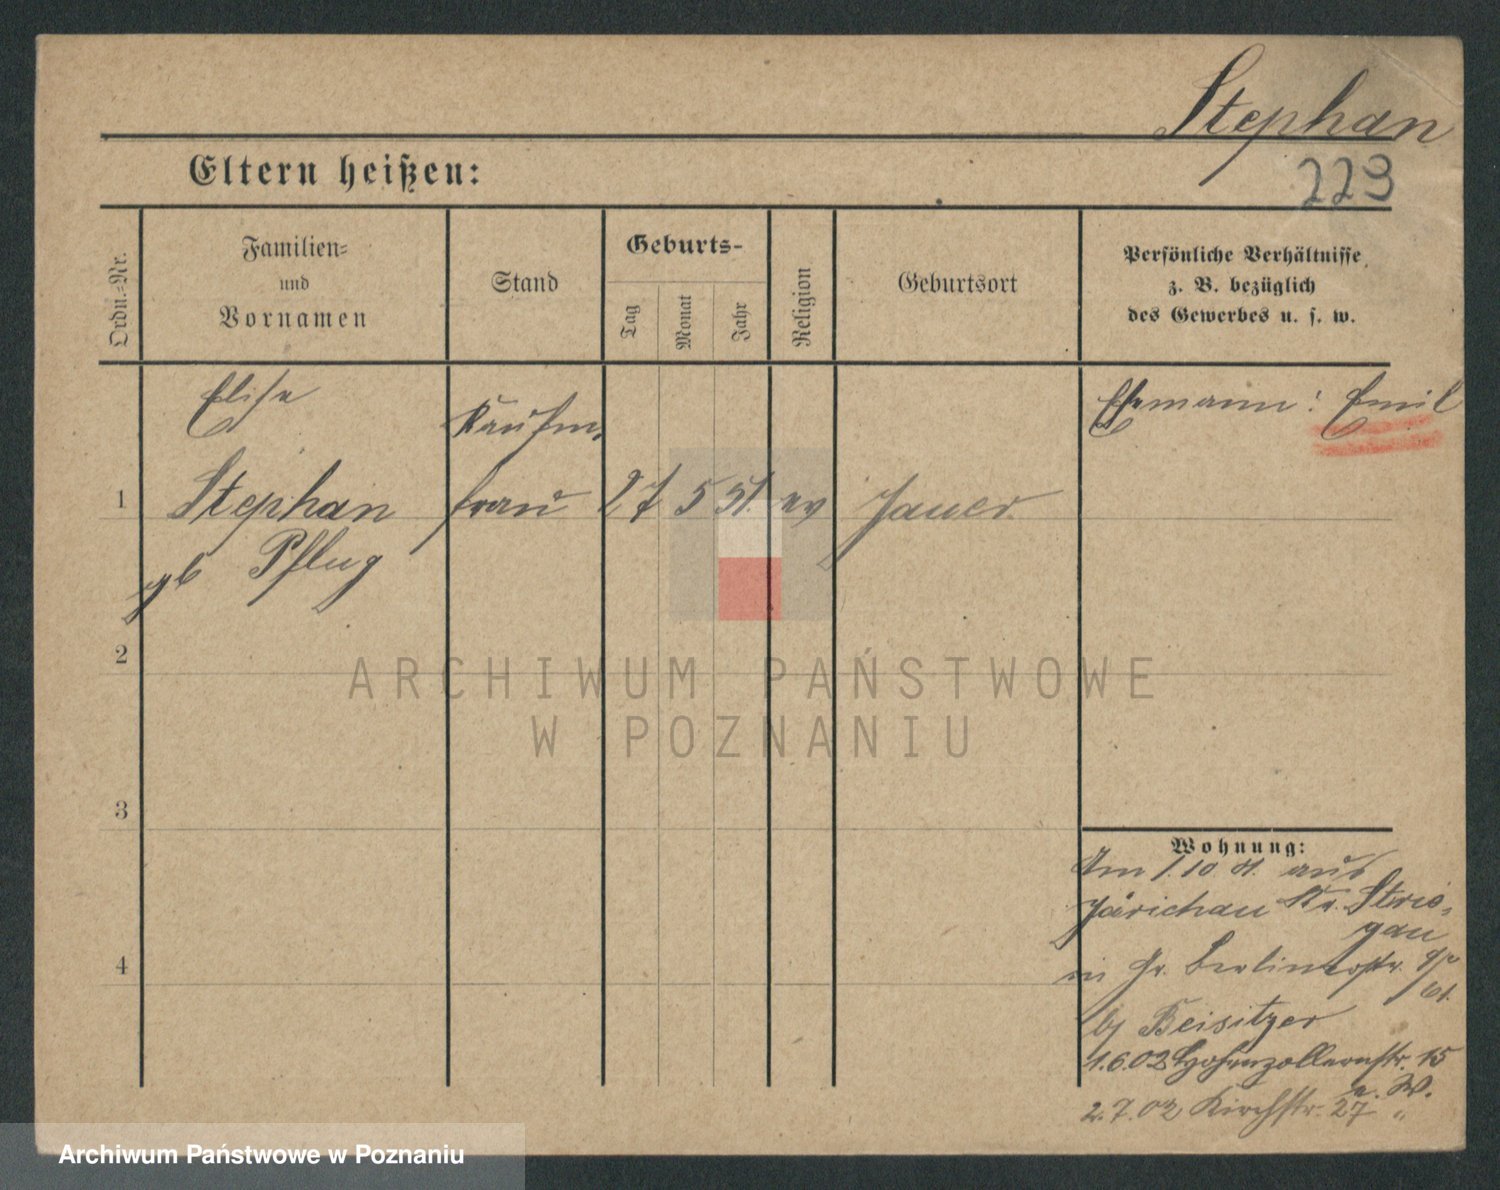 Stephan
Eltern heißen:
223
Ordn.=Nr.
Familien=
und
Vornamen
Stand
Geburts-
Tag
Monat
Jahr
Religion
Geburtsort
Persönliche Verhältnisse
z. B. bezüglich
des Gewerbes u. s. w.
Elise
Kaufm.
Ehemann: Emil
1
Stephan
frau
27
5
51.
ev
Jauer.
gb Pflug
2
ARCHIWUM PAŃSTWOWE
W POZNANIU
3
4
Wohnung:
Am 1.10.01. aus
Järichau Kr. Strie-
gau
in Gr. Berlinerstr.
bj Beisitzer
1.6.02 Hohenzollernstr. 15
e. W.
2.7.02 Kirchstr. 27 "
Archiwum Państwowe w Poznaniu